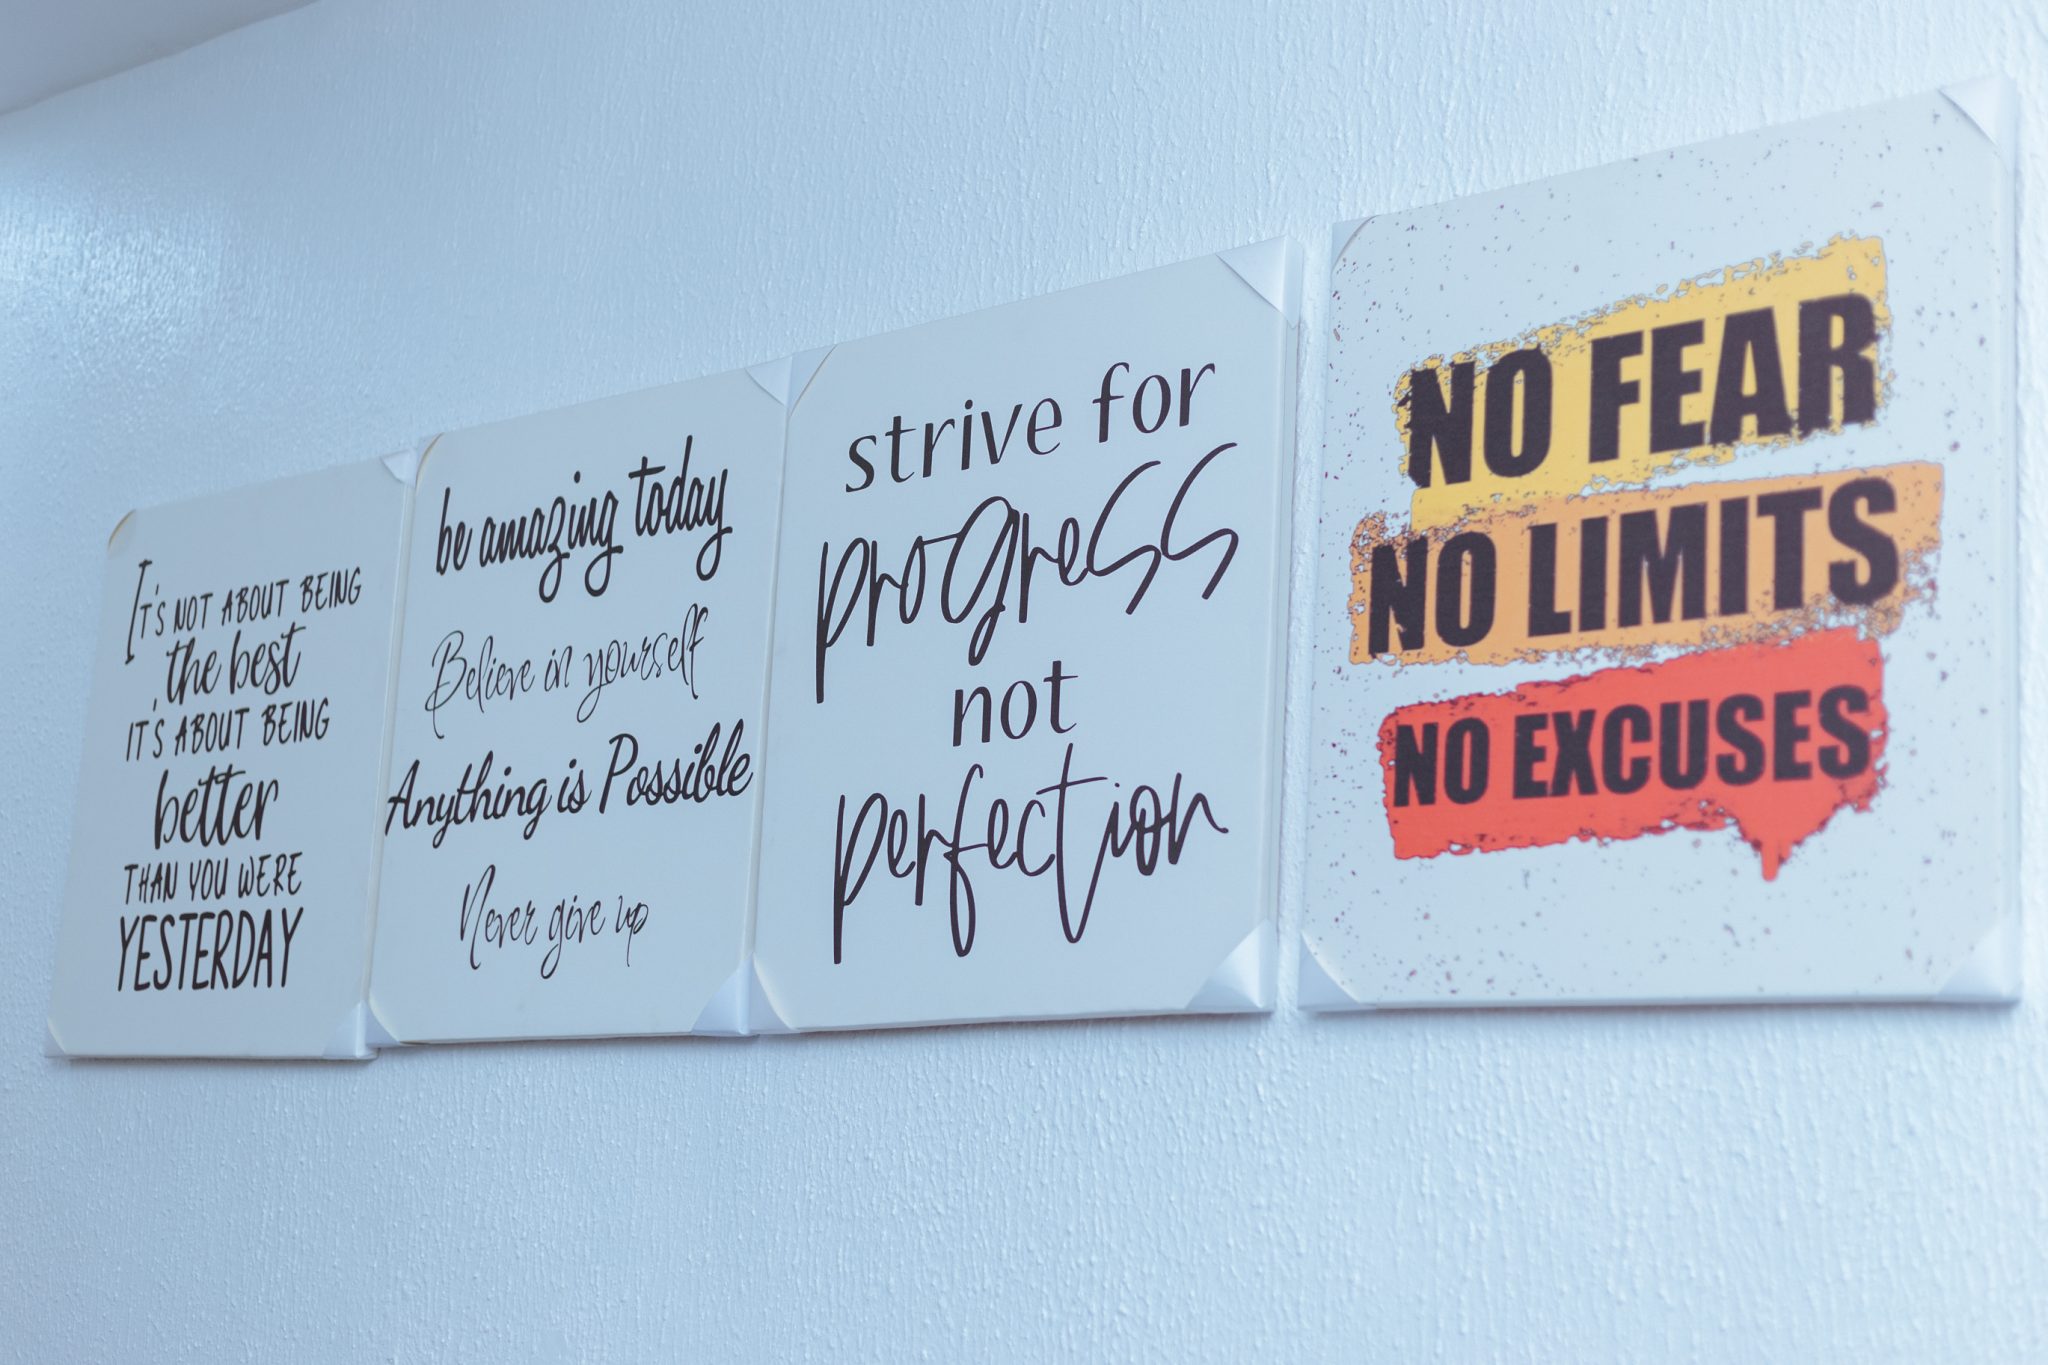 It's NOT ABOUT BEING
the best
IT'S ABOUT BEING
better
THAN YOU WERE
YESTERDAY
be amazing today
Believe in yourself
Anything is Possible
Never give up
strive for
progress
not
perfection
NO FEAR
NO LIMITS
NO EXCUSES